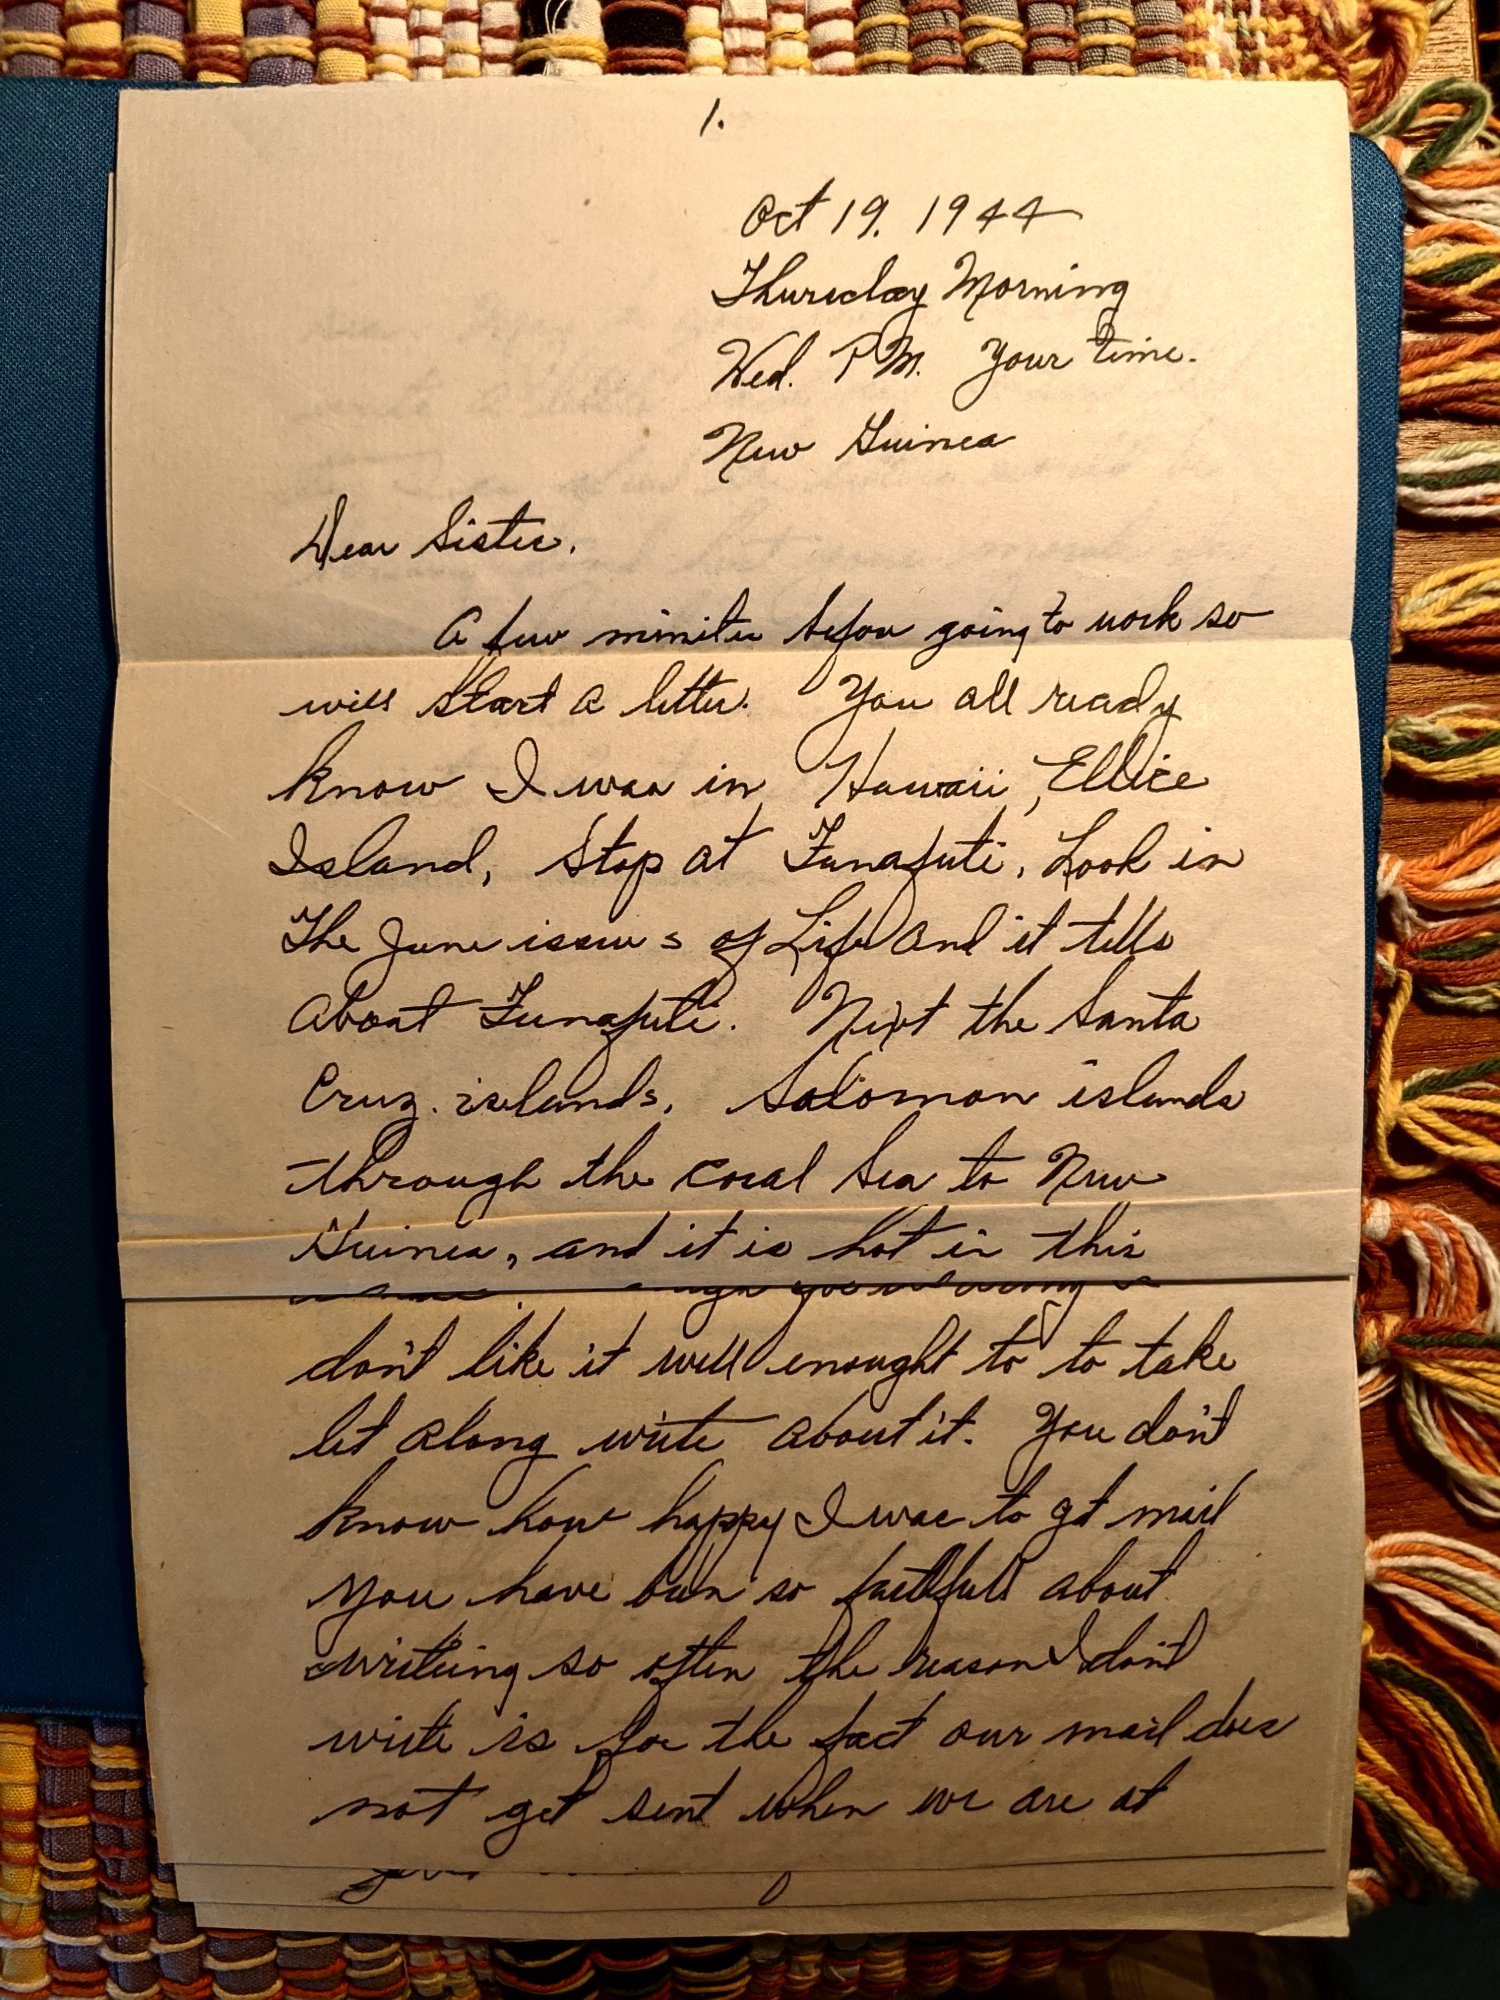 1.
Oct 19. 1944
Thursday Morning
Wed. P.M. Your time.
New Guinea
Dear Sister.
A few minites before going to work so
will start a letter. You all ready
know I was in Hawaii, Ellice
Island, Stop at Funafuti, Look in
The June issue s of Life and it tells
about Funafuti. Next the Santa
Cruz. islands, Solomon islands
through the coral Sea to New
Guinea, and it is hot in this
don't like it well enought to to take
let along write about it. You don't
know how happy I was to get mail
you have been so faithfull about
writeing so often the reason I don't
write is for the fact our mail does
not get sent when we are at